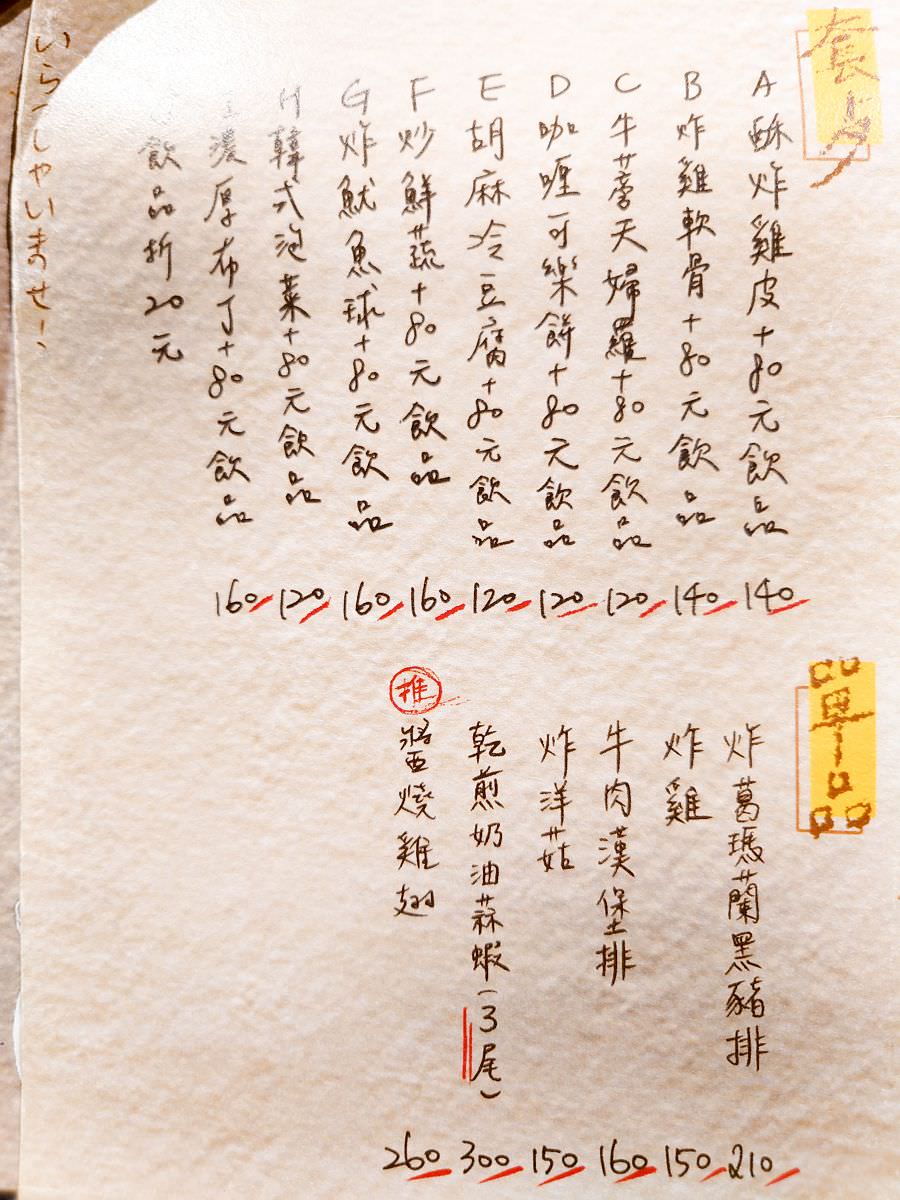 套夕
A酥炸雞皮+80元飲品 140
B炸雞軟骨+80元飲品 140
C牛蒡天婦羅+80元飲品 120
D咖喱可樂餅+80元飲品 120
E胡麻冷豆腐+80元飲品 120
F炒鮮蔬+80元飲品 160
G炸魷魚球+80元飲品 160
H韓式泡菜+80元飲品 120
I濃厚布丁+80元飲品 160
飲品折20元
いらっしゃいませ!
單品
炸葛瑪蘭黑豬排 210
炸雞 150
牛肉漢堡排 160
炸洋菇 150
乾煎奶油蒜蝦(3尾) 300
推 醬燒雞翅 260